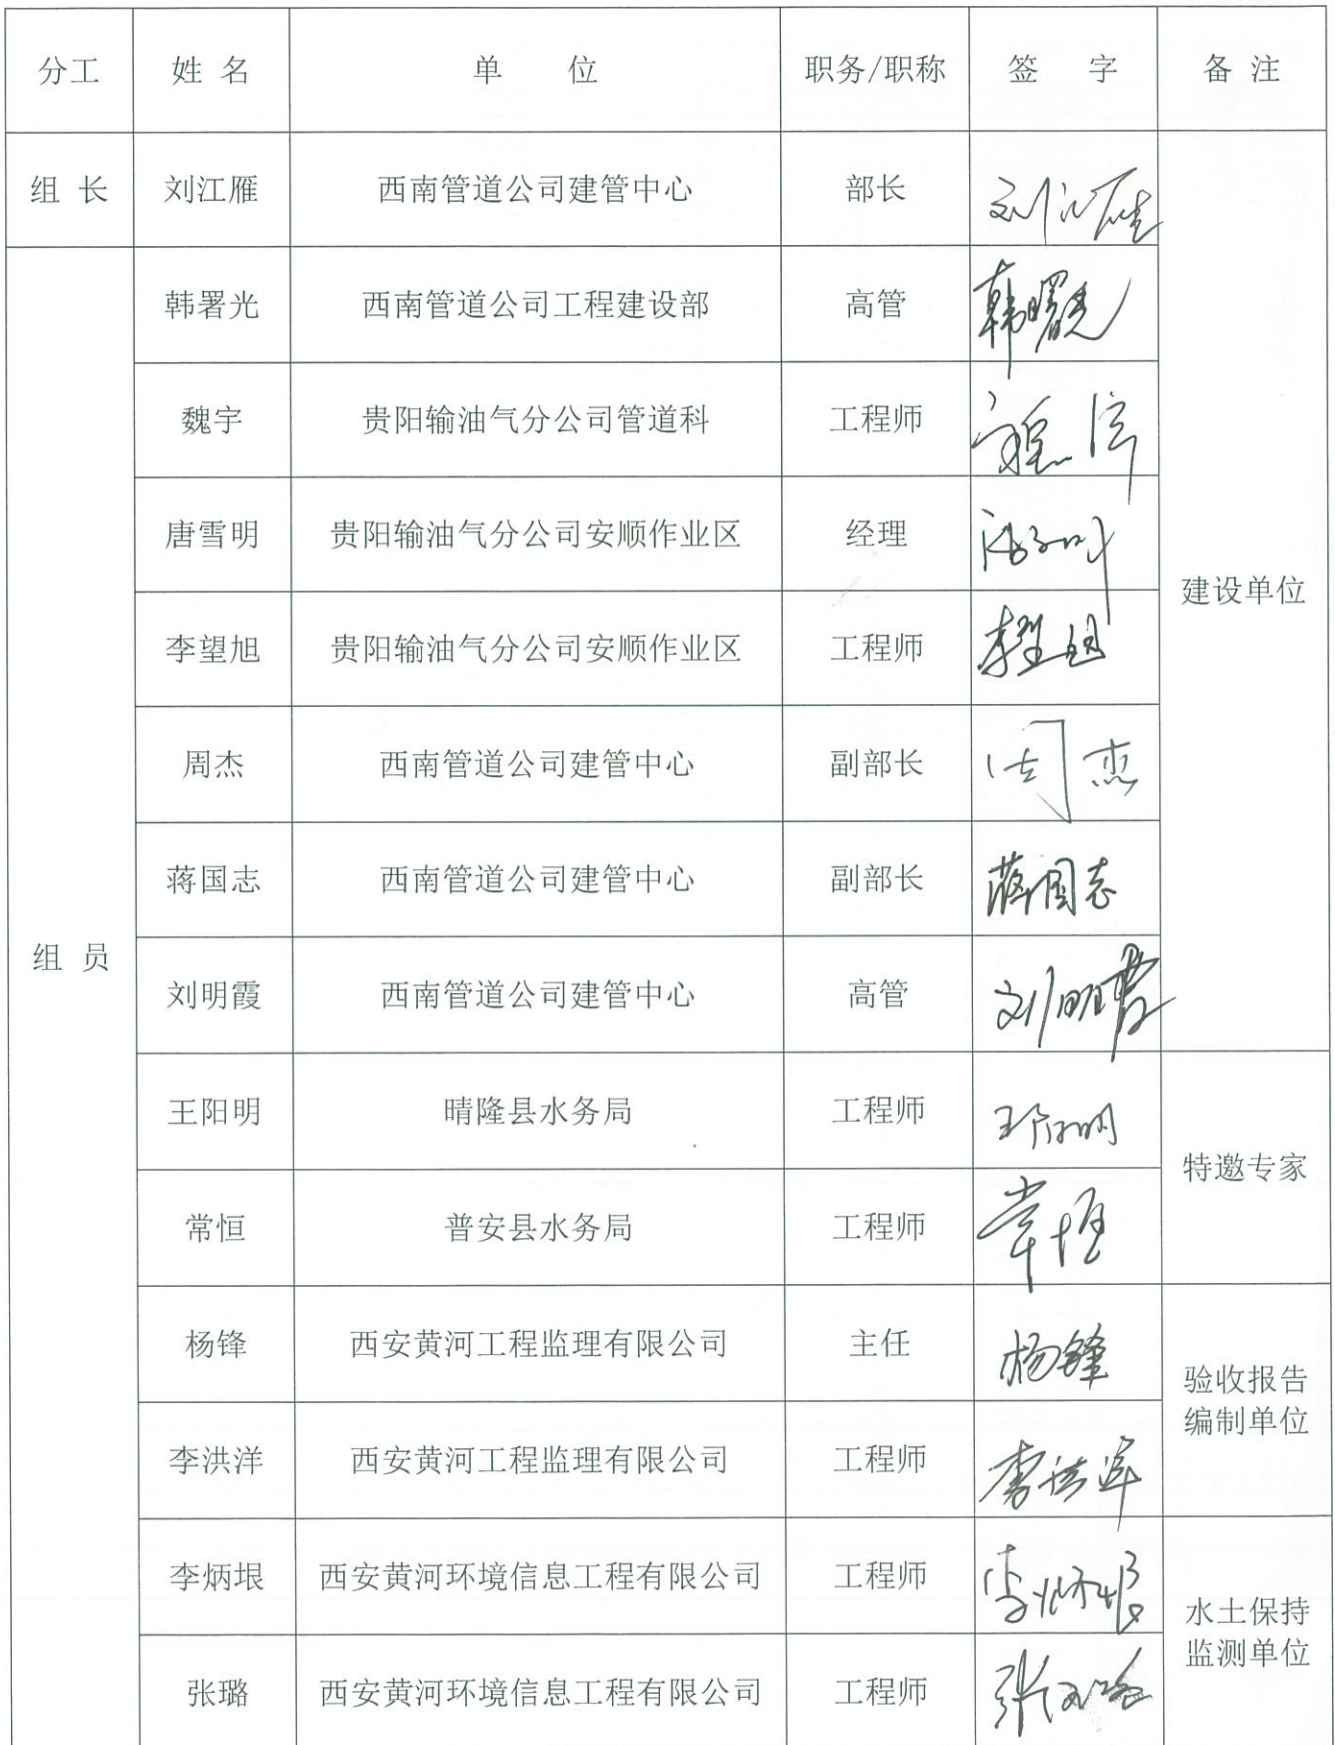 分工 姓 名 单 位 职务/职称 签 字 备 注
组 长 刘江雁 西南管道公司建管中心 部长 刘江雁
韩署光 西南管道公司工程建设部 高管 韩曙光
魏宇 贵阳输油气分公司管道科 工程师
唐雪明 贵阳输油气分公司安顺作业区 经理
建设单位
李望旭 贵阳输油气分公司安顺作业区 工程师 李望旭
周杰 西南管道公司建管中心 副部长 周杰
蒋国志 西南管道公司建管中心 副部长 蒋国志
组 员
刘明霞 西南管道公司建管中心 高管 刘明霞
王阳明 晴隆县水务局 工程师 王阳明
特邀专家
常恒 普安县水务局 工程师 常恒
杨锋 西安黄河工程监理有限公司 主任 杨锋
验收报告
编制单位
李洪洋 西安黄河工程监理有限公司 工程师 李洪洋
李炳垠 西安黄河环境信息工程有限公司 工程师 李炳垠
水土保持
监测单位
张璐 西安黄河环境信息工程有限公司 工程师 张璐